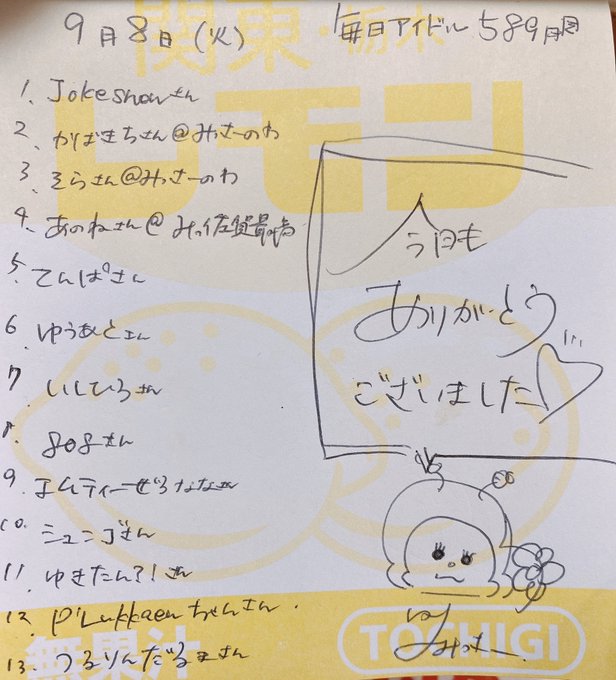 9月8日(火)
毎日アイドル589日目
関東・栃木
レモン
1. Jokeshowさん
2. かばまちさん@みっさーのわ
3. そらさん@みっさーのわ
4. あのねさん@みっ佐賀最高
5. てんぱさん
6 ゆうあとさん
7 いしひろさん
8. 808さん
9. エムティーぜろななさん
10. シュンゴさん
11. ゆきたん?!さん
12. P'Lukkaewちゃんさん.
13. つるりんだるまさん
今日も
ありがとう...
ございました♡
by みっさー
無果汁
TOCHIGI